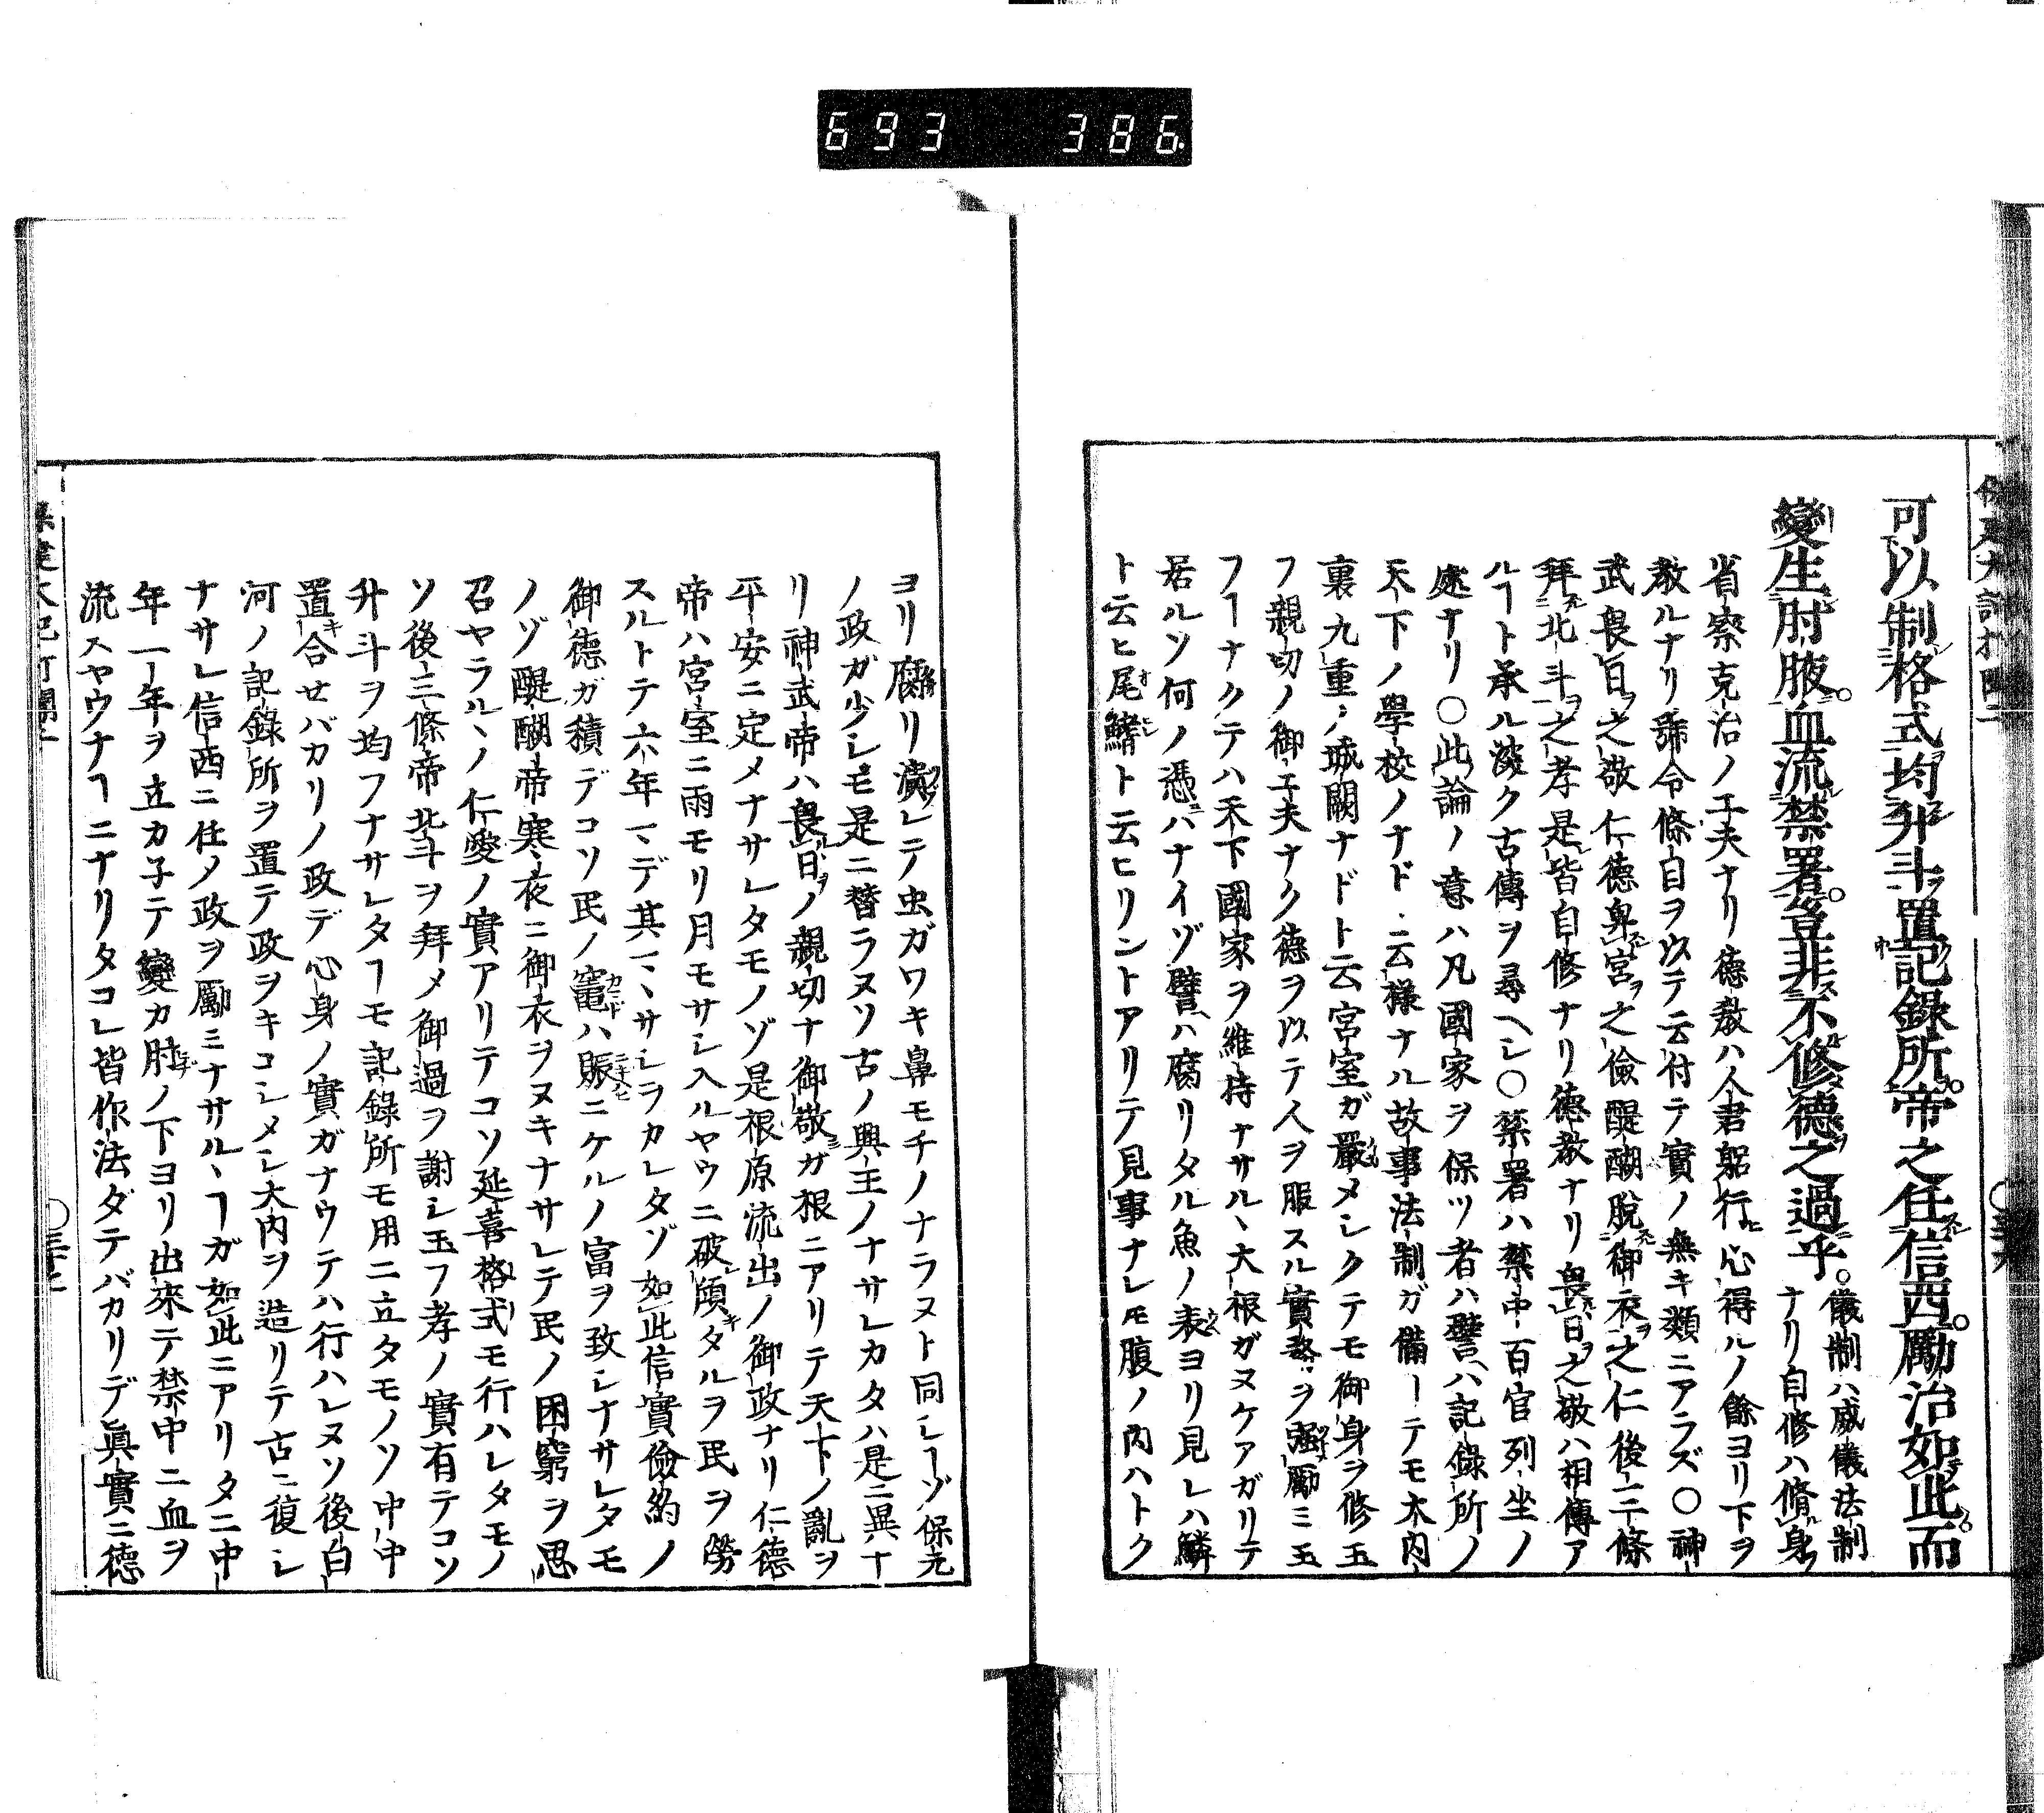 693 386
可以制格式均升斗置記錄所。帝之任信西。勵治如此而
變生肘腋。血流禁署。豈非不修德之過乎。
儀制ハ威儀法制
ナリ自修ハ脩身
省察克治ノ工夫ナリ德教ハ人君躬行心得ルノ餘ヨリ下ヲ
教ルナリ號令條目ヲ以テ云付テ實ノ無キ類ニアラズ〇神
武畏日之敬仁德卑宮之儉醍醐脫御衣之仁後三條
拜北斗之孝是皆自修ナリ德教ナリ畏日之敬ハ相傳ア
ルヿト承ル淡ク古傳ヲ尋ヘシ〇禁署ハ禁中百官列坐ノ
處ナリ〇此論ノ意ハ凡國家ヲ保ツ者ハ譬ハ記錄所ノ
天下ノ學校ノナドヽ云樣ナル故事法制ガ備ーテモ大內
裏九重ノ城闕ナドト云宮室ガ嚴メシクテモ御身ヲ修玉
フ親切ノ御工夫ナク德ヲ以テ人ヲ服スル實ヲ强勵ミ玉
フヿナクテハ天下國家ヲ維持ナサルヽ大根ガヌケアガリテ
居ルソ何ノ憑ハナイゾ譬ハ腐リタル魚ノ表ヨリ見レハ鱗
ト云ヒ尾鰭ト云ヒリントアリテ見事ナレモ腹ノ內ハトク
ヨリ腐リ潰レテ虫ガワキ鼻モチノナラヌト同シヿゾ保元
ノ政ガ少シモ是ニ替ラヌソ古ノ興王ノナサレカタハ是ニ異ナ
リ神武帝ハ畏日ノ親切ナ御敬ガ根ニアリテ天下ノ亂ヲ
平安ニ定メナサレタモノゾ是根原流出ノ御政ナリ仁德
帝ハ宮室ニ雨モリ月モサシ入ルヤウニ破傾タルヲ民ヲ勞
スルトテ六年マデ其マヽサシヲカレタゾ如此信實儉約ノ
御德ガ積デコソ民ノ竈ハ賑ニケルノ富ヲ致シナサレタモ
ノゾ醍醐帝寒夜ニ御衣ヲヌキナサレテ民ノ困窮ヲ思
召ヤラルヽノ仁愛ノ實アリテコソ延喜格式モ行ハレタモノ
ソ後三條帝北斗ヲ拜メ御過ヲ謝シ玉フ孝ノ實有テコソ
升斗ヲ均フナサレタヿモ記錄所モ用ニ立タモノソ中中
置合せバカリノ政デ心身ノ實ガナウテハ行ハレヌソ後白
河ノ記錄所ヲ置テ政ヲキコシメシ大內ヲ造リテ古ニ復シ
ナサレ信西ニ任メ政ヲ勵ミナサルヽヿガ如此ニアリタニ中
年一年ヲ立カ子テ變カ肘ノ下ヨリ出來テ禁中ニ血ヲ
流スヤウナヿニナリタコレ皆作法ダテバカリデ眞實ニ德